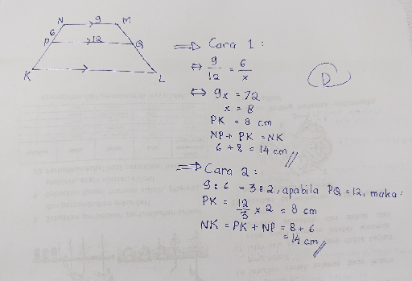 N 9 M
6
P 12 Q
K L
⇒ Cara 1 :
⇔ 9/12 = 6/x
⇔ 9x = 72
x = 8
PK = 8 cm
NP + PK = NK
6 + 8 = 14 cm //
D
⇒ Cara 2 :
9 : 6 = 3 : 2, apabila PQ = 12, maka :
PK = 12/3 x 2 = 8 cm
NK = PK + NP = 8 + 6
= 14 cm //